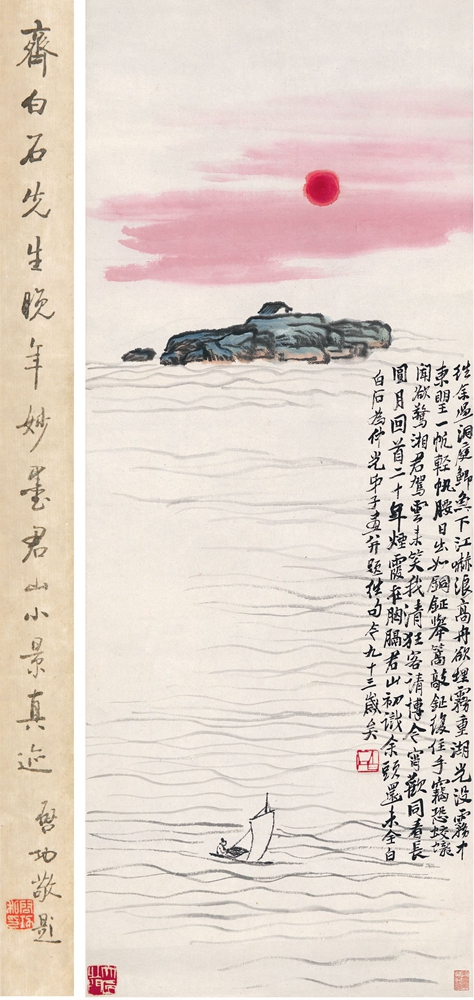 往余過洞庭鯽魚下江嚇浪高舟欲埋霧重湖光没霧中
東朢一帆輕帆腰日出如銅鉦舉篙敲鉦復住手竊恐蛟龍
聞欲驚湘君駕雲來笑我清狂客請博今宵歡同看長
圓月回首二十年煙霞在胸膈君山初識余頭還未全白
白石為仲光弟子畫并題往句今九十三歲矣
齊白石先生晚年妙墨君山小景真迹
啓功敬題